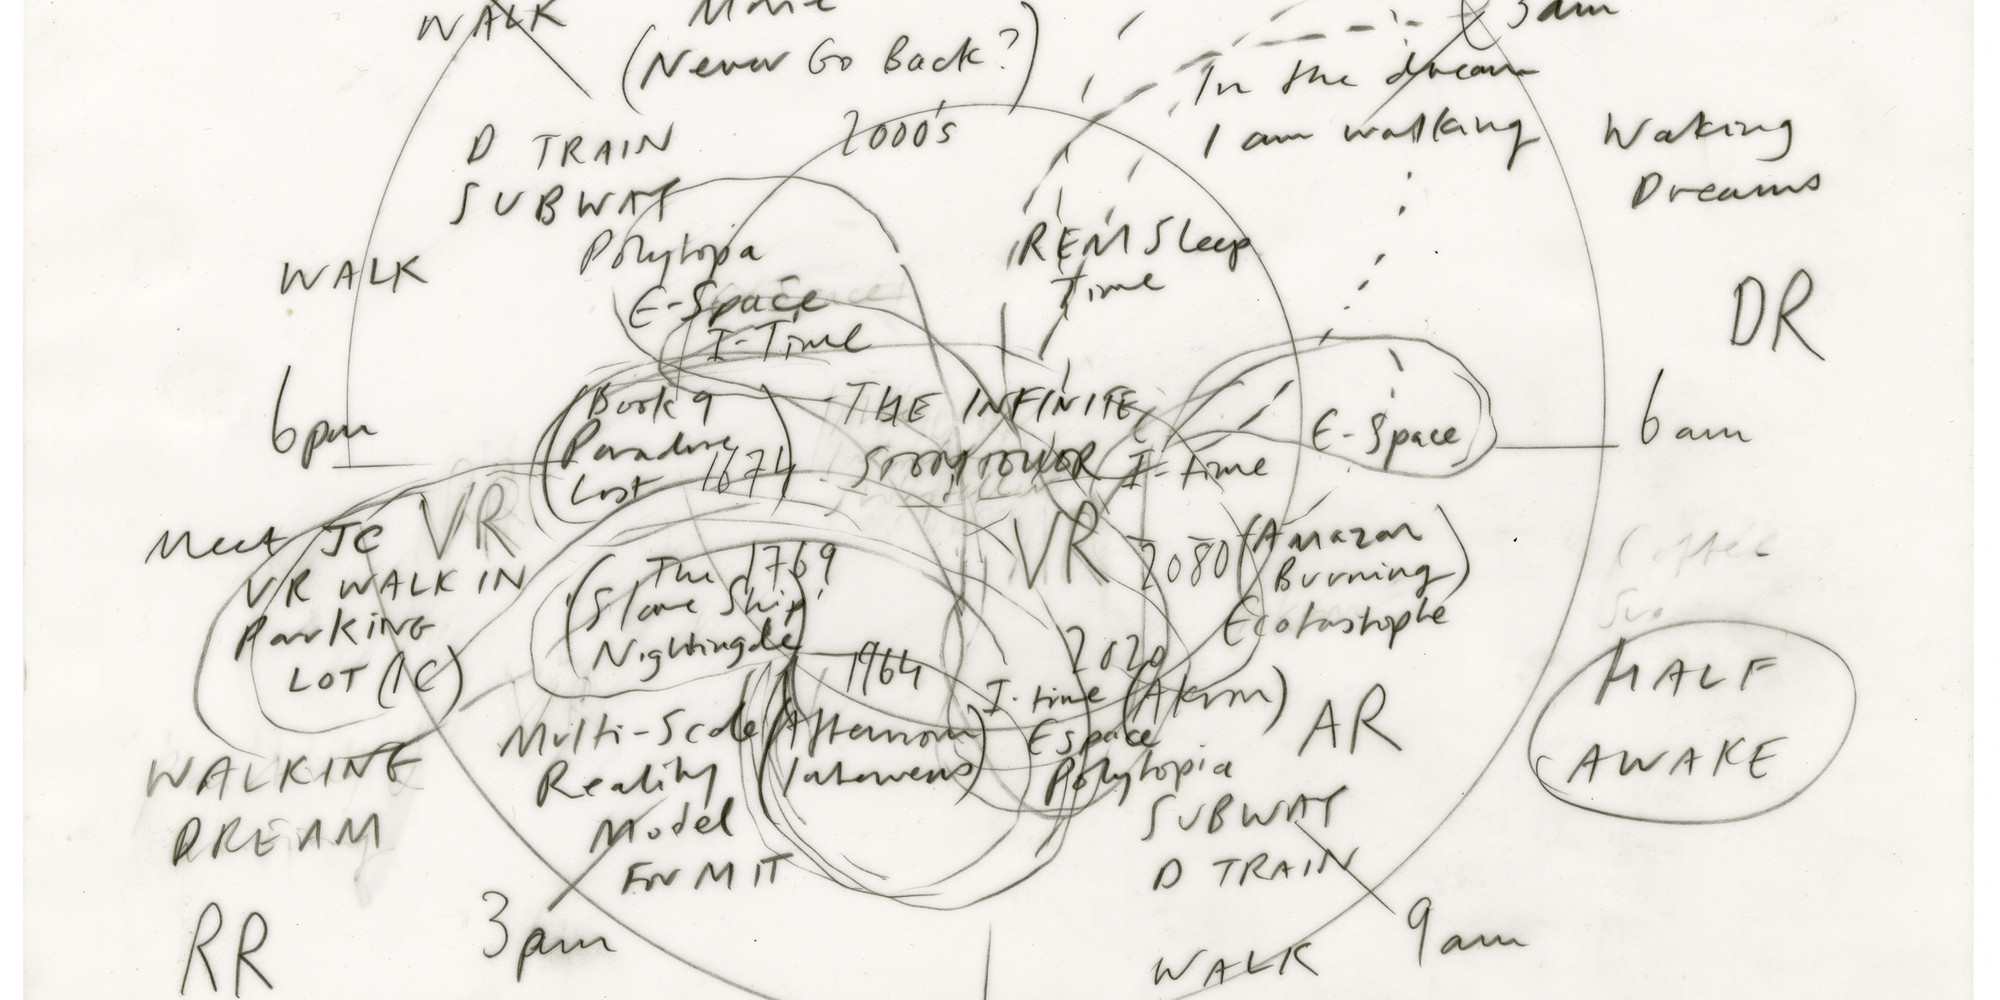 WALK
Movie
(Never Go Back?)
3am
2000's
In the dream
I am walking
Waking
Dreams
D TRAIN
SUBWAY
WALK
Polytopia
E-Space
I-Time
REM Sleep
Time
DR
6pm
Book 9
Paradise
Lost 1674
THE INFINITE
I-time
E-Space
6am
Meet JC
VR
VR WALK IN
PARKING
LOT (IC)
The 1769
Slave Ship'
Nightingale
VR
2080 (Amazon
Burning)
Ecotastrophe
Coffee
HALF
AWAKE
1964
(Afternoon
Intervens)
2020
I-time (Alarm)
Espace
Polytopia
AR
Multi-Scale
Reality
Model
For MIT
SUBWAY
D TRAIN
WALKING
DREAM
RR
3pm
WALK
9am